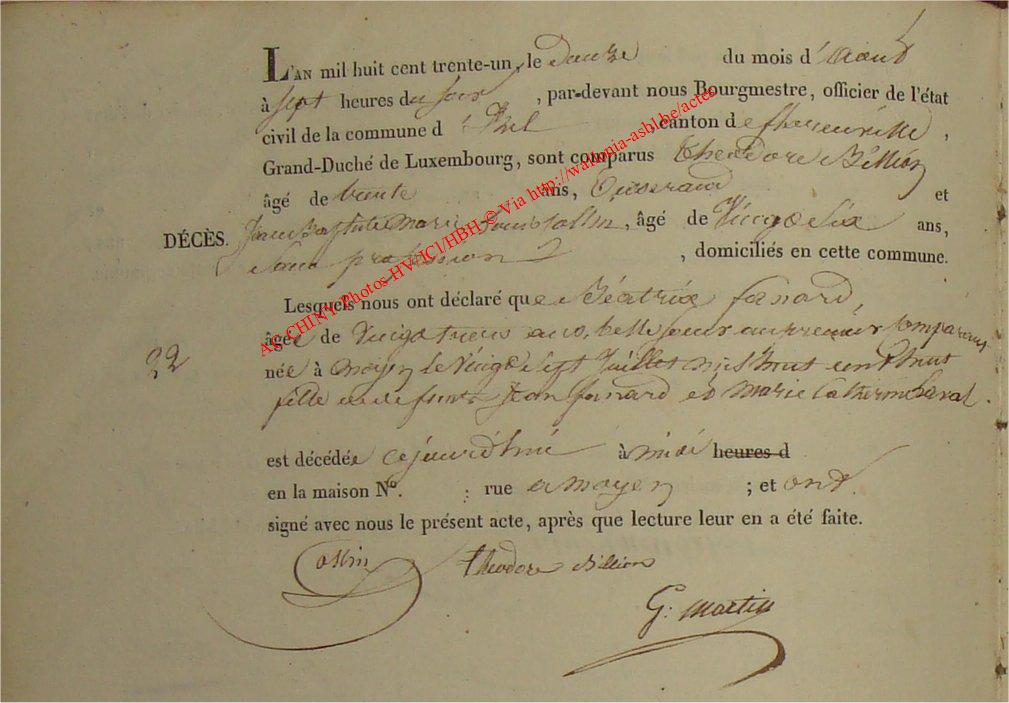 L'AN mil huit cent trente-un, le Douze du mois d'Aout
à sept heures du soir, par-devant nous Bourgmestre, officier de l'état
civil de la commune d'Izel, canton de florenville,
Grand-Duché de Luxembourg, sont comparus Theodore Billion
âgé de trente ans, Tisserand et
DÉCÈS. Jean Baptiste Marie Louis Collin, âgé de Vingt six ans,
Sans profession, domiciliés en cette commune.
Lesquels nous ont déclaré que Béatrix fanard,
âgée de Vingt trois ans, belle soeur au premier Comparant
22
née à moyen le Vingt sept Juillet mil huit cent huit
fille de defunt Jean fanard et Marie Catherine
est décédée cejourd'hui à midi heures d
en la maison N°. : rue a moyen ; et ont
signé avec nous le présent acte, après que lecture leur en a été faite.
Théodore Billion
G. Martin
ASCHINY Photos HVICI/HBH © Via http://wallonia-asbl.be/actes